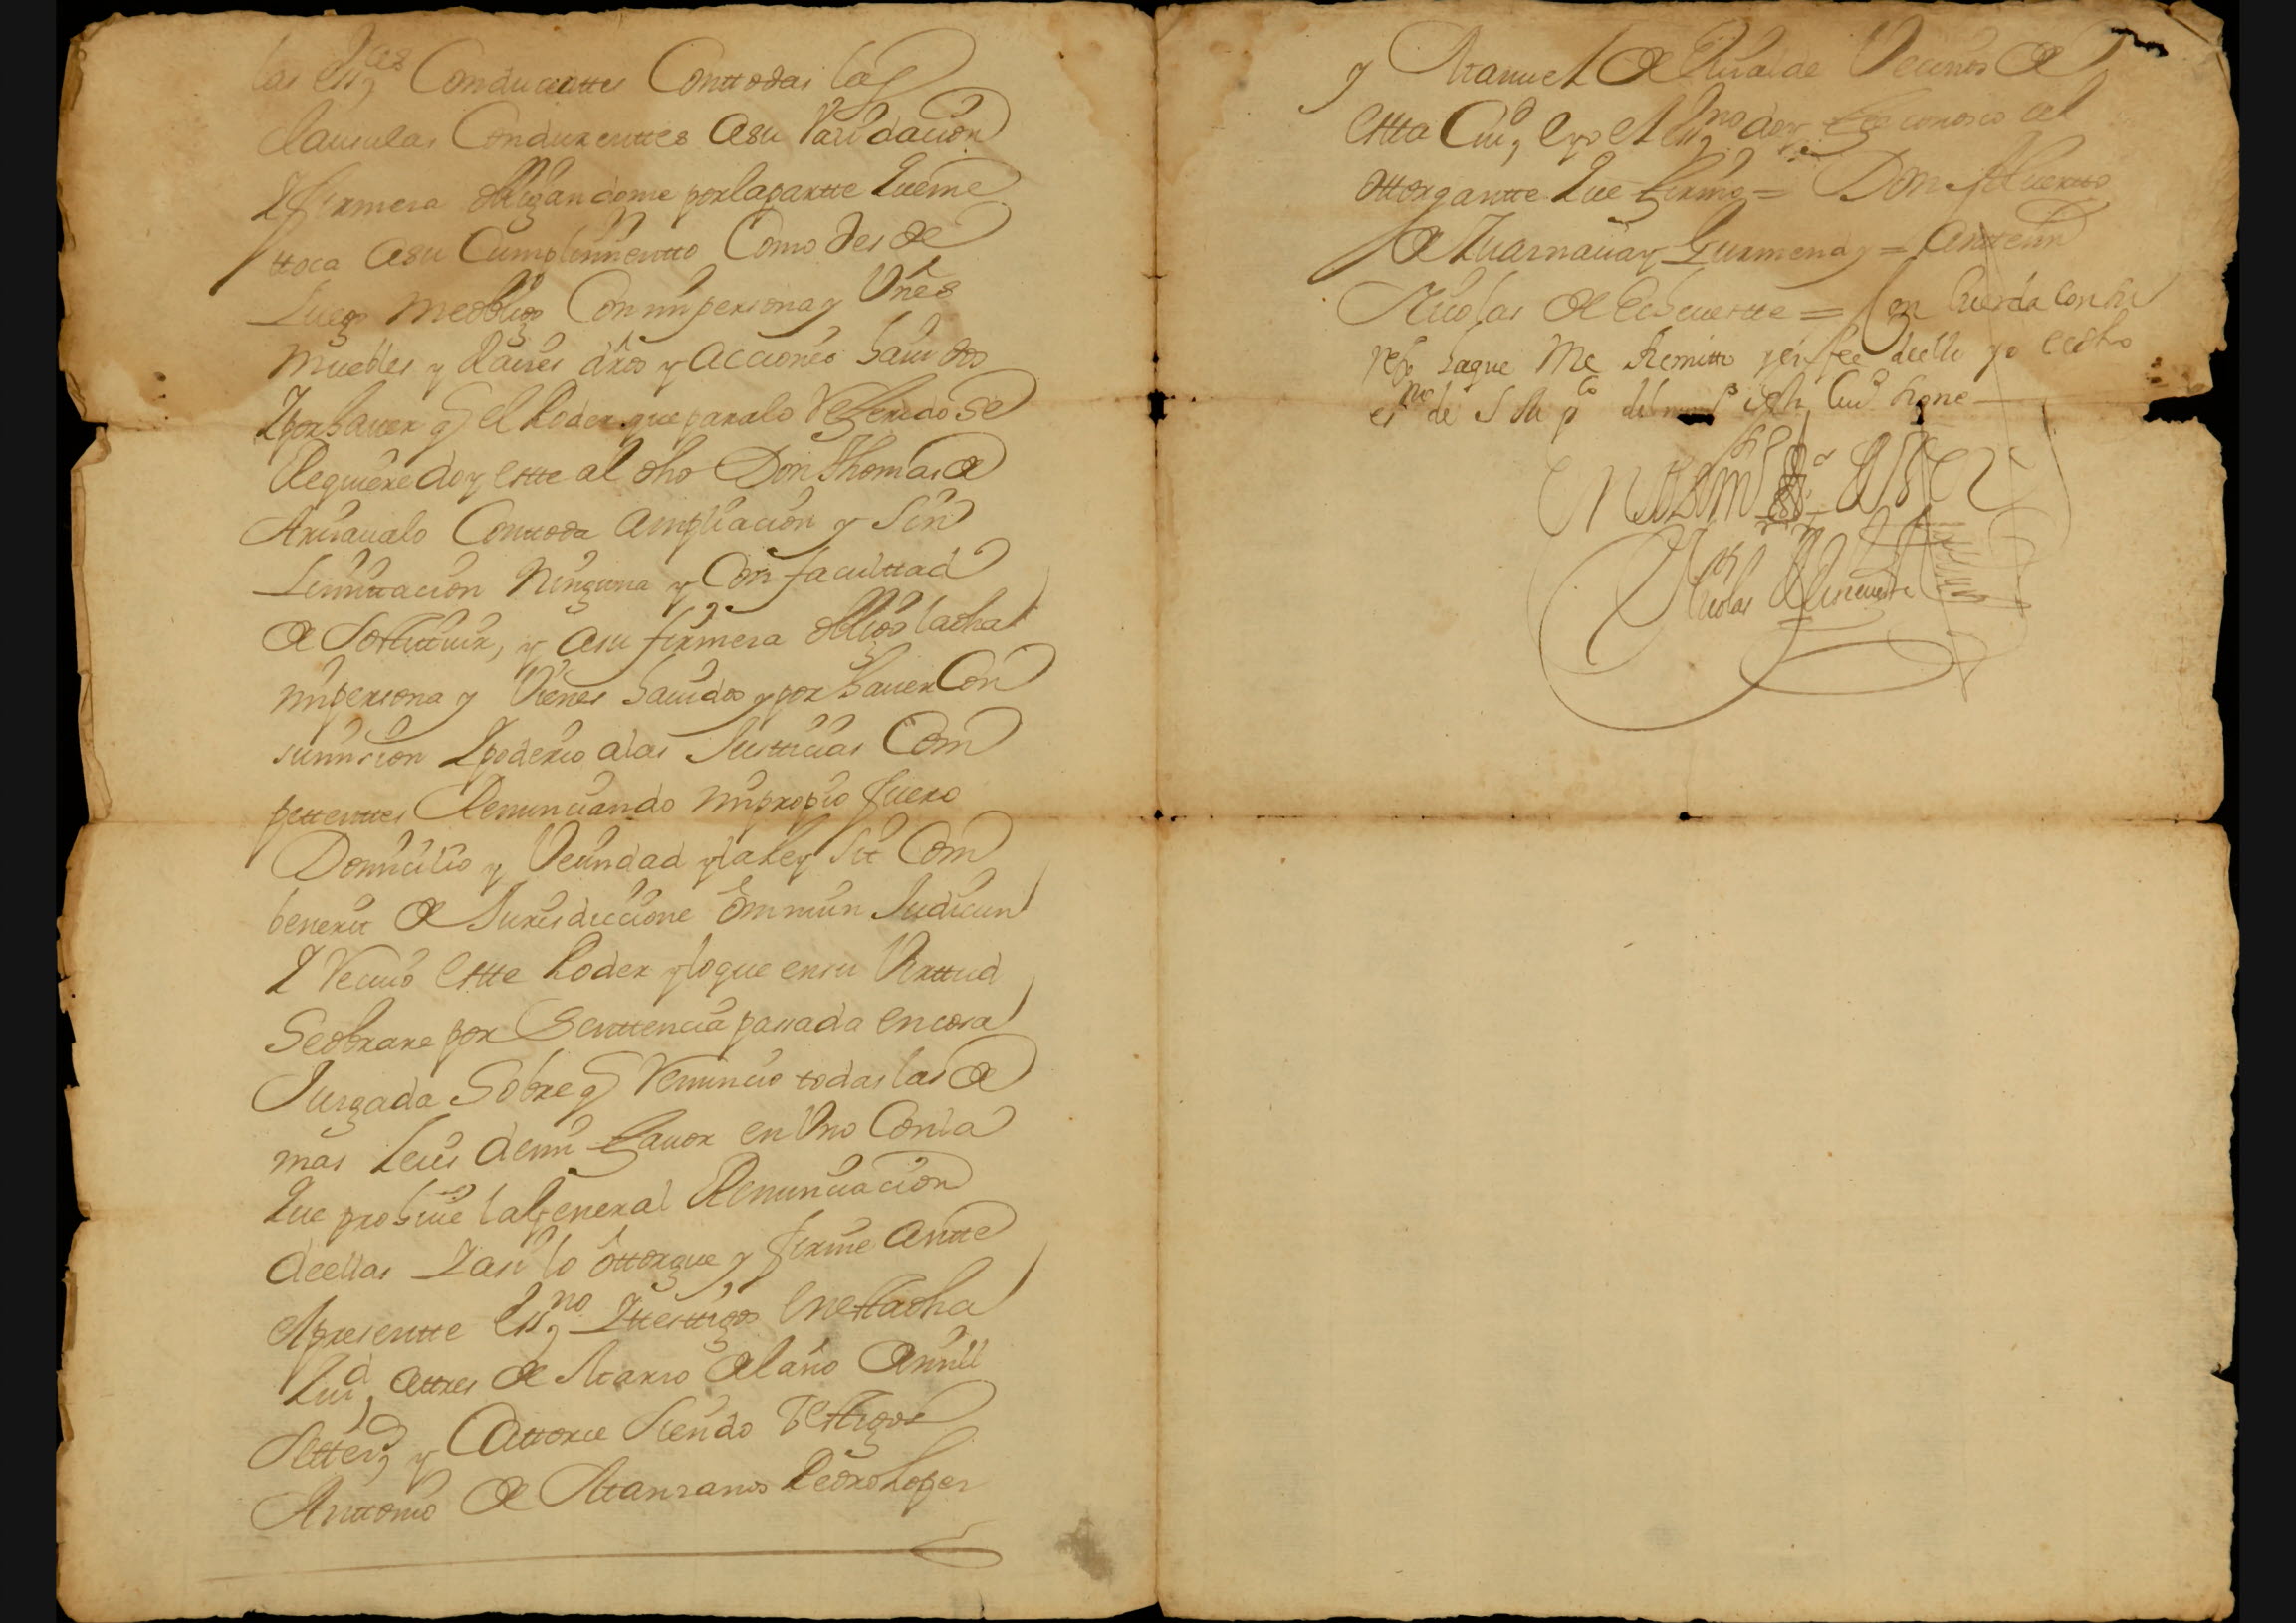 las ess.ces Conducenttes Conttodas las
Clausulas Conduzenttes asu Validacion
Y firmesa obligandome porlapartte Queme
ttoca asu Cumplimientto Como desde
Luego meobligo Conmipersona y Vnēs
muebles y Raices dr̄os y acciones hauidos
Yporhauer q̄ el Poder que paralo Referido se
Requiere doy estte al dho Don Thomas de
Arisaualo Conttoda ampliacion y Sin
Limittacion Ninguna y Con facultad
de Sosttituir, y asu firmesa obligo ladha
mipersona y Vienes hauidos y por hauer Con
sumision Ypoderio alas Justticias Com
pettenttes Renunciando mipropio fuero
Domicilio y Vecindad ylaley Sit Com
benerit de Jurisdiccione Ommiun Judicun
Y Reciuo estte Poder yloque ensu Virttud
Seobrare por Senttencia passada encosa
Jusgada Sobre q̄ Renuncio todas las de
mas Leies demi fauor en Vno Conla
Que prohiue laGeneral Renunciacion
deellas Yasi lo ottorgue y firme antte
elpresentte ess.no Yttesttigos enesttadha
Ciu.d attres de Marso delaño demill
Settez.s y Cattorse Siendo Testtigos
Anttonio de Manzanos Pedro Lopes
y Manuel de Vivalde Vecinos de
estta Ciu.d eyo el ess.no doy fee conosco al
ottorgantte Que firmo = Don Aluertto
de Zuasnauary Gurmendy = anttemi
Nicolas de Echeuestte = Concuerda con su
regō saque Me Remitto yen fee deello yo el dho
ess.no de S M p.co del num.o desta Ciu.d signe
Nicolas de Echeuestte